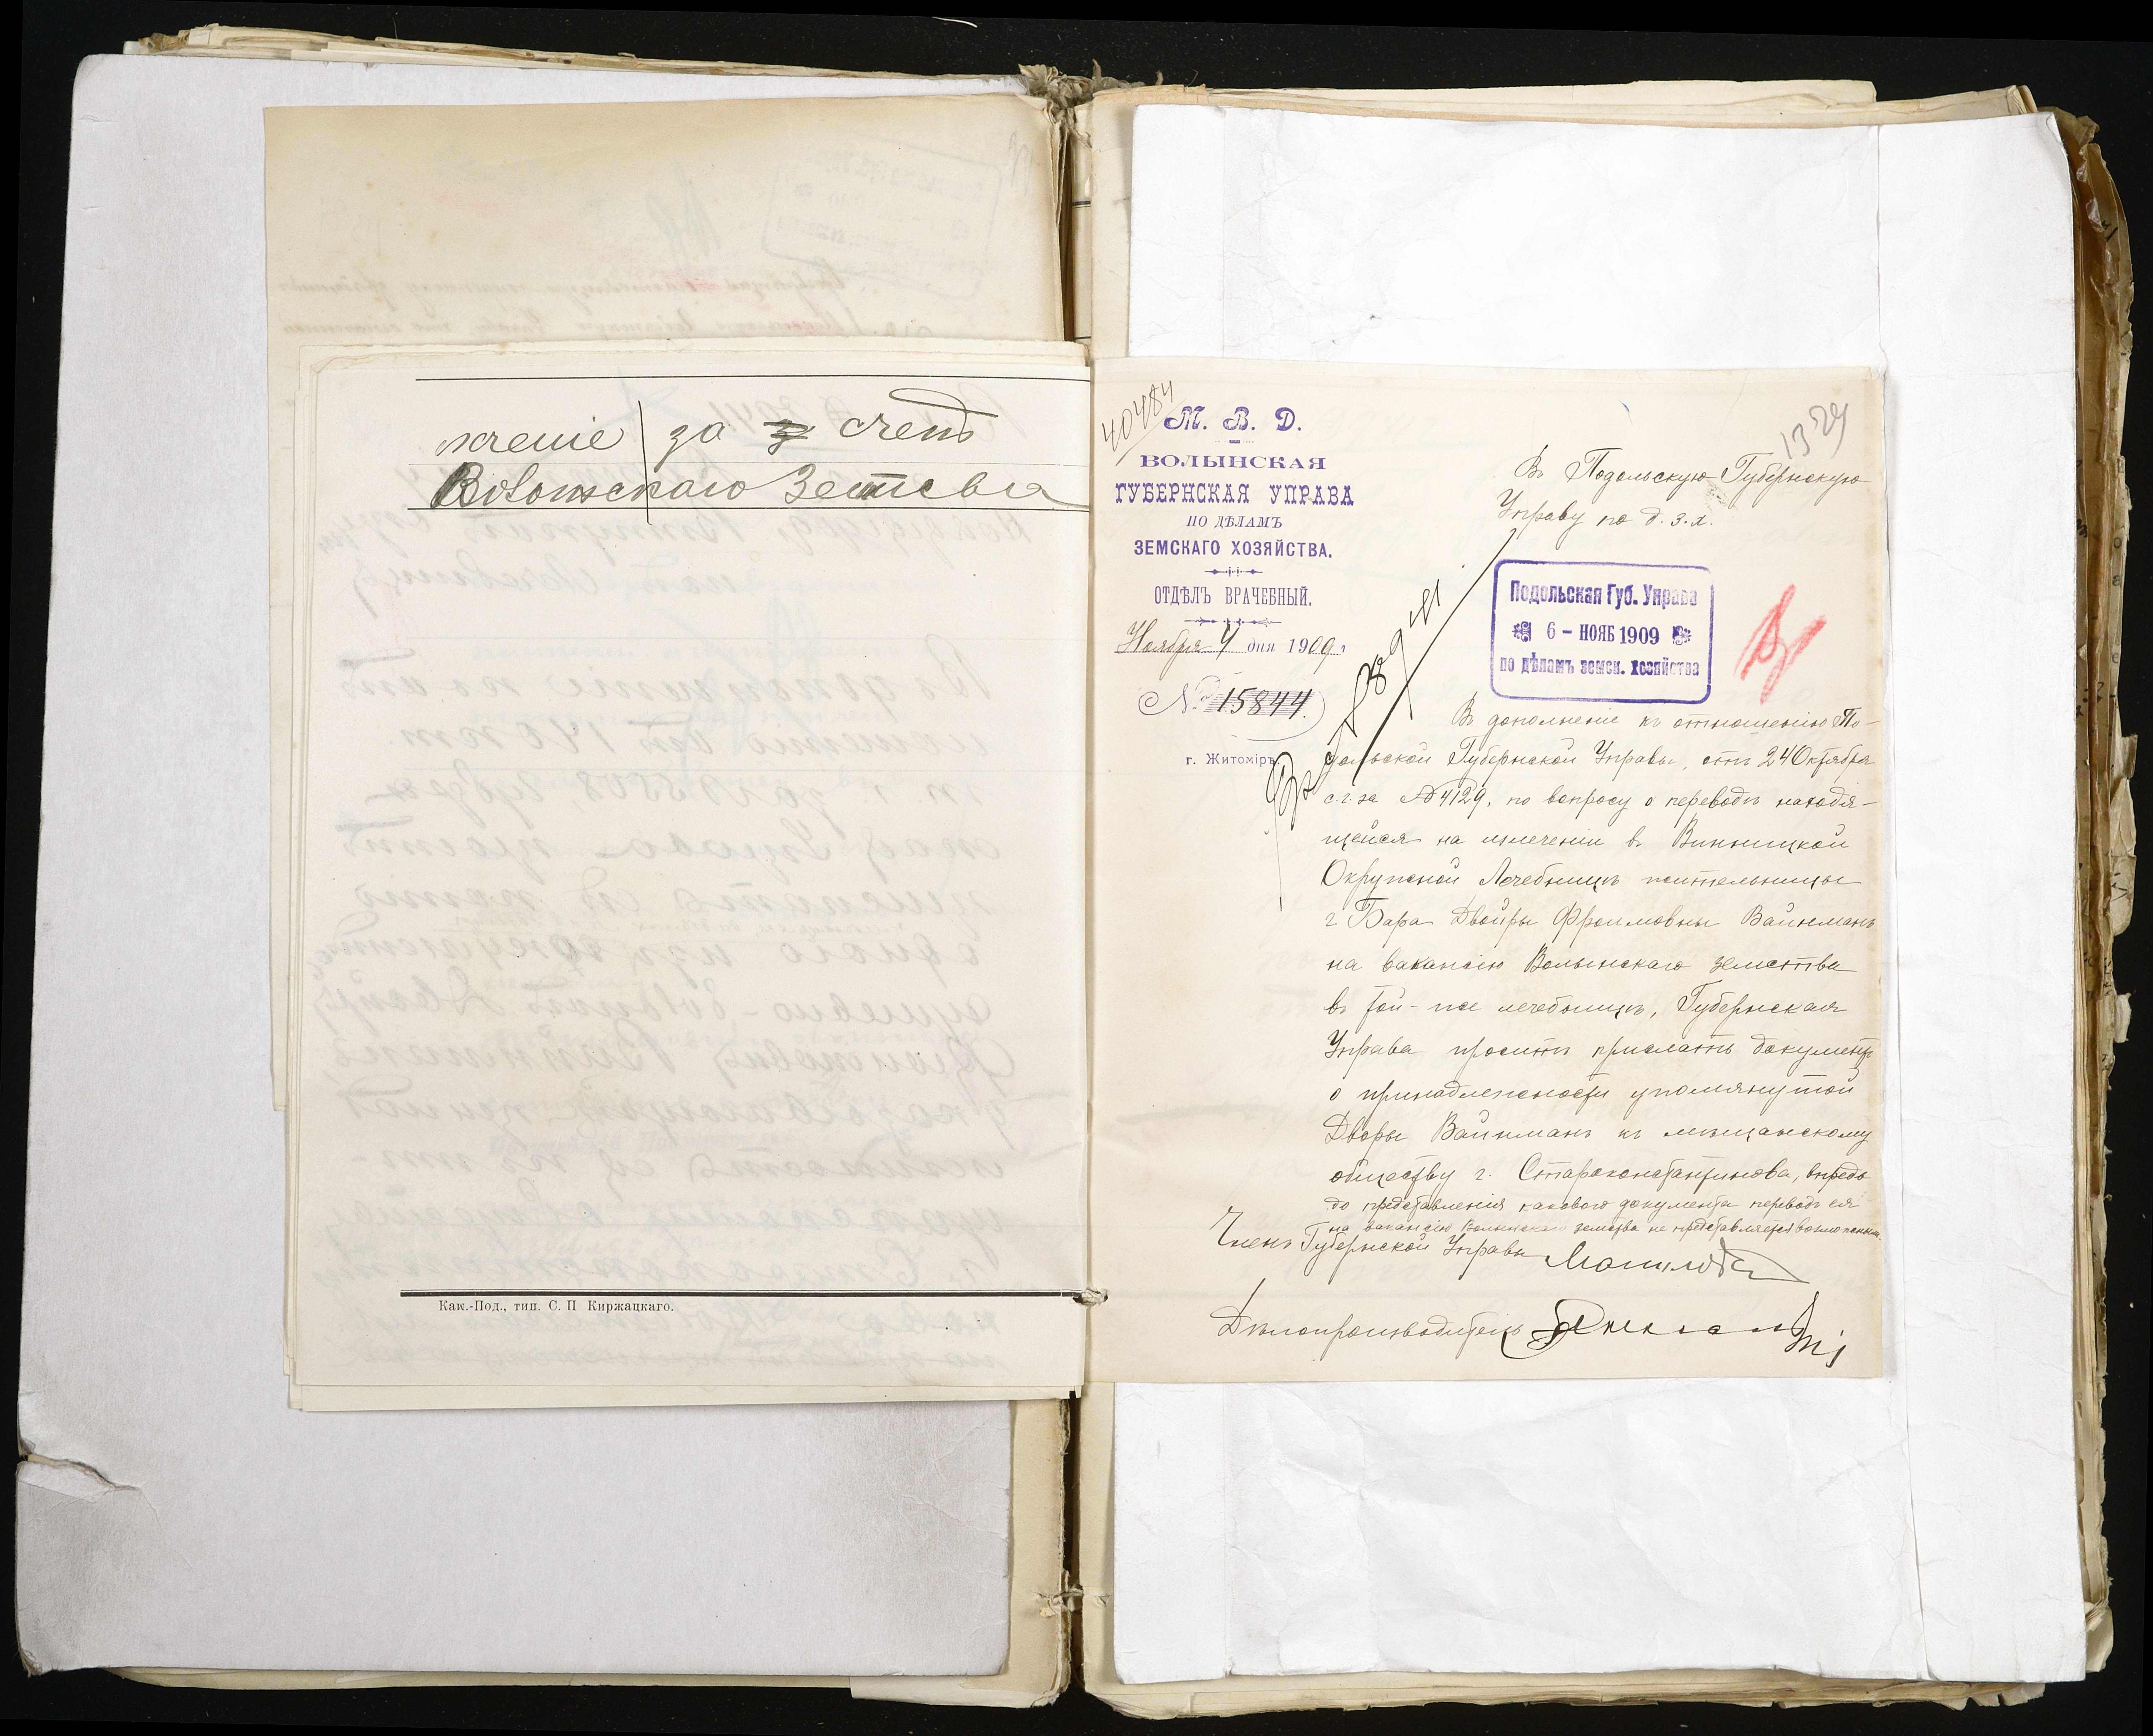 жение за счетъ
Волынскаго Земства
Кам.-Под., тип. С. П Киржацкаго.
40484
М. В. Д.
ВОЛЫНСКАЯ
ГУБЕРНСКАЯ УПРАВА
ПО ДѢЛАМЪ
ЗЕМСКАГО ХОЗЯЙСТВА.
ОТДѢЛЪ ВРАЧЕБНЫЙ.
Ноября 4 дня 1909 г.
№ 15844.
г. Житоміръ.
1329
Въ Подольскую Губернскую
Управу по д. з. х.
Подольская Губ. Управа
6 - НОЯБ 1909
по дѣламъ земск. хозяйства
Въ дополненіе къ отношенію По-
дольской Губернской Управы, отъ 24 Октября
с.г. за № 4129, по вопросу о переводѣ находя-
щейся на излеченіи въ Винницкой
Окружной Лечебницѣ жительницы
г. Бара Двойры Фроимовны Вайнманъ
на вакансію Волынскаго земства
въ той-же лечебницѣ, Губернская
Управа проситъ прислать документъ
о принадлежности упомянутой
Двойры Вайнманъ къ мѣщанскому
обществу г. Староконстантинова, впредь
до представленія каковаго документа переводъ ея
на вакансію Волынскаго земства не представляется возможнымъ.
Членъ Губернской Управы
Дѣлопроизводитель